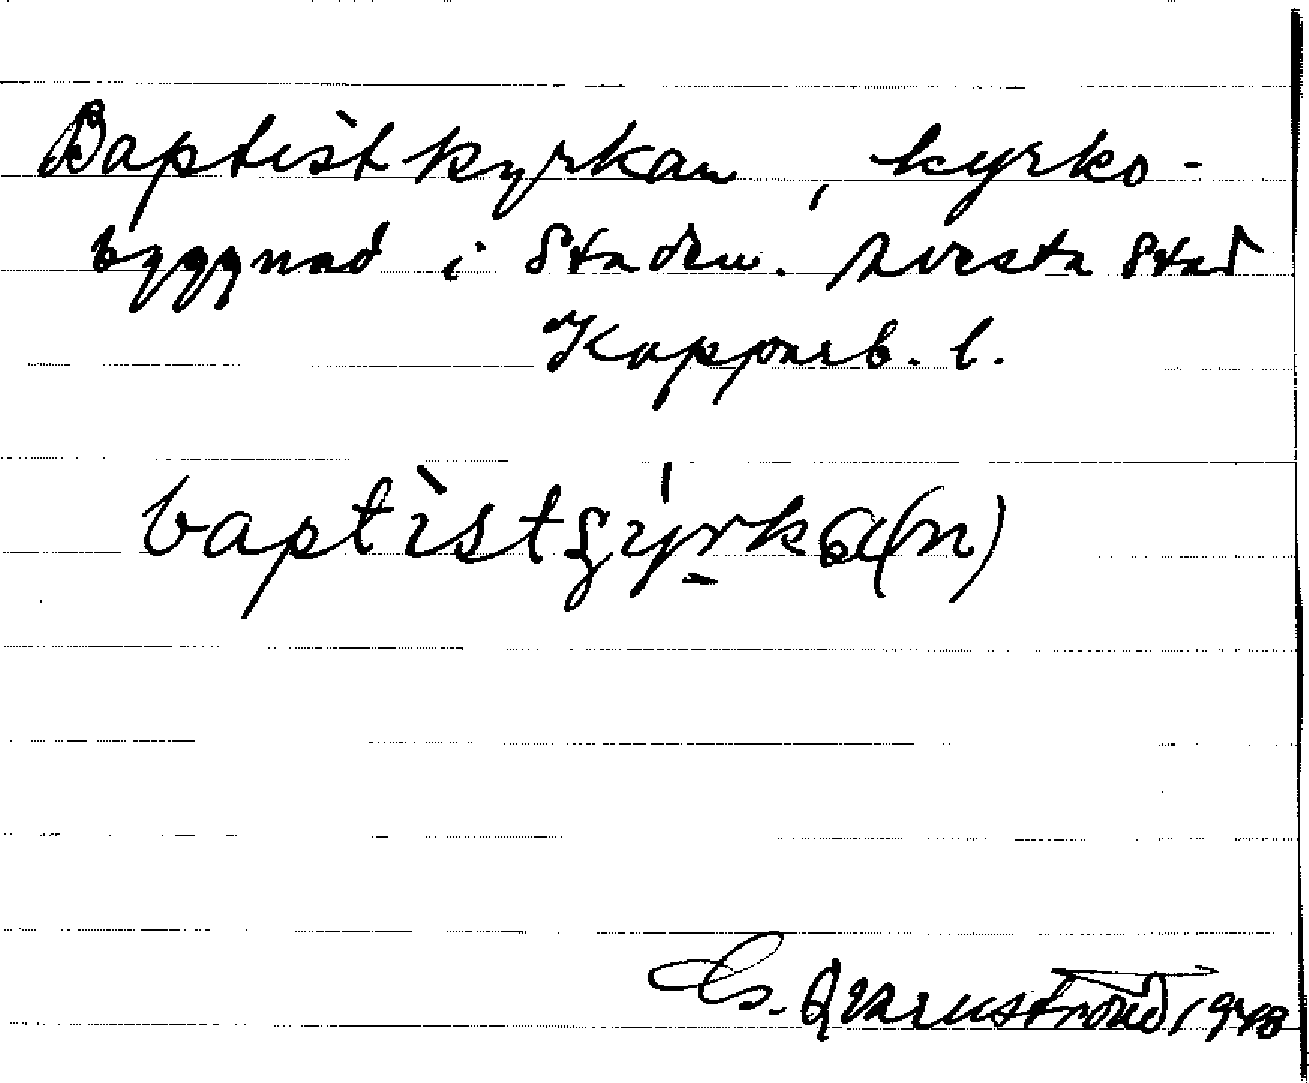 Baptistkyrkan, kyrko-
byggnad i Staden. Avesta stad
Kopparb. l.
baptìstɕy̍rka(n)
G. Qvarnström 1948